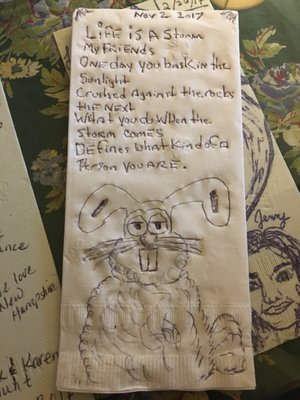 Nov 2 2017
Life is A Storm
My Friends
One day you bask in the
Sunlight
Crushed Against the rocks
the Next
What you do When the
Storm comes
Defines what kind of a
Person you are.
Jerry
love
New
Hampshire
& Karen